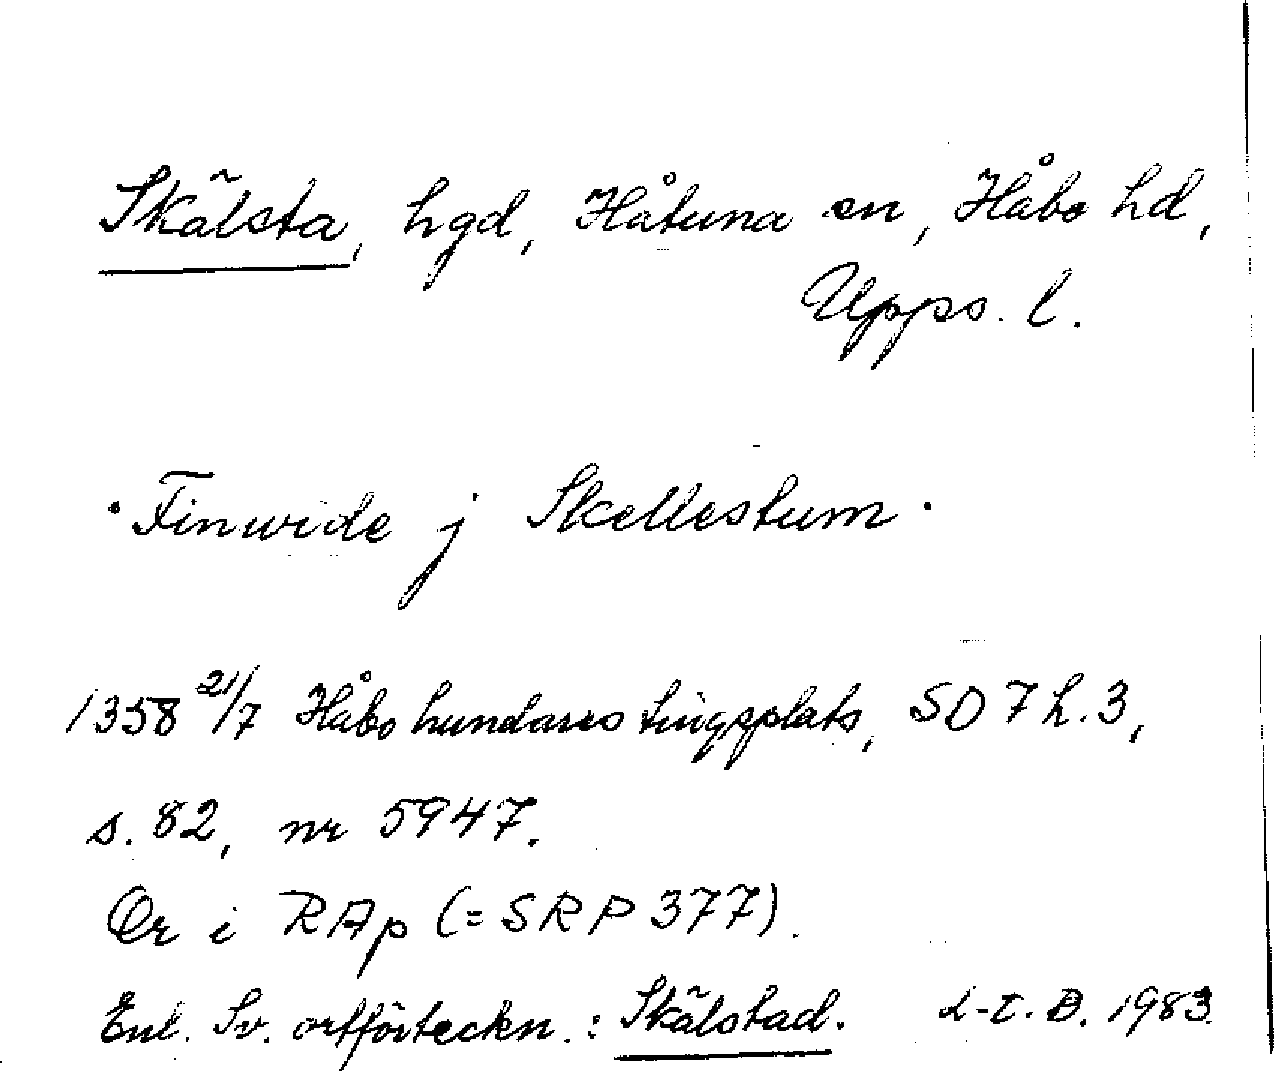 Skälsta, hgd, Håtuna sn, Håbo hd,
Upps. l.
· Finwide j Skellestum ·
1358 21/7 Håbo hundares tingsplats, SD 7 h. 3,
s. 82, nr 5947.
Or i RAp (= SRP 377).
Enl. Sv. ortförteckn.: Skälstad. L-E. B. 1983